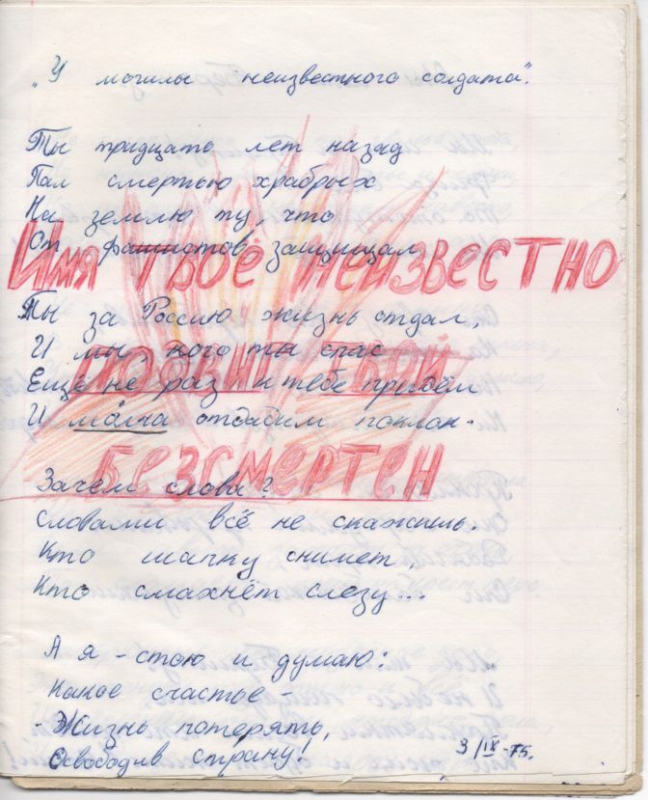 „У могилы неизвестного солдата".
Ты тридцать лет назад
Пал смертью храбрых
На землю ту, что
От фашистов защищал.
Имя твоё неизвестно
Ты за Россию жизнь отдал,
И мы, кого ты спас
подвиг твой
Ещё не раз к тебе придём
И молча отдадим поклон.
безсмертен
Зачем слова?
Словами всё не скажешь.
Кто шапку снимет,
Кто смахнёт слезу...
А я - стою и думаю:
Какое счастье -
- Жизнь потерять,
Освободив страну!
3/IX-75.